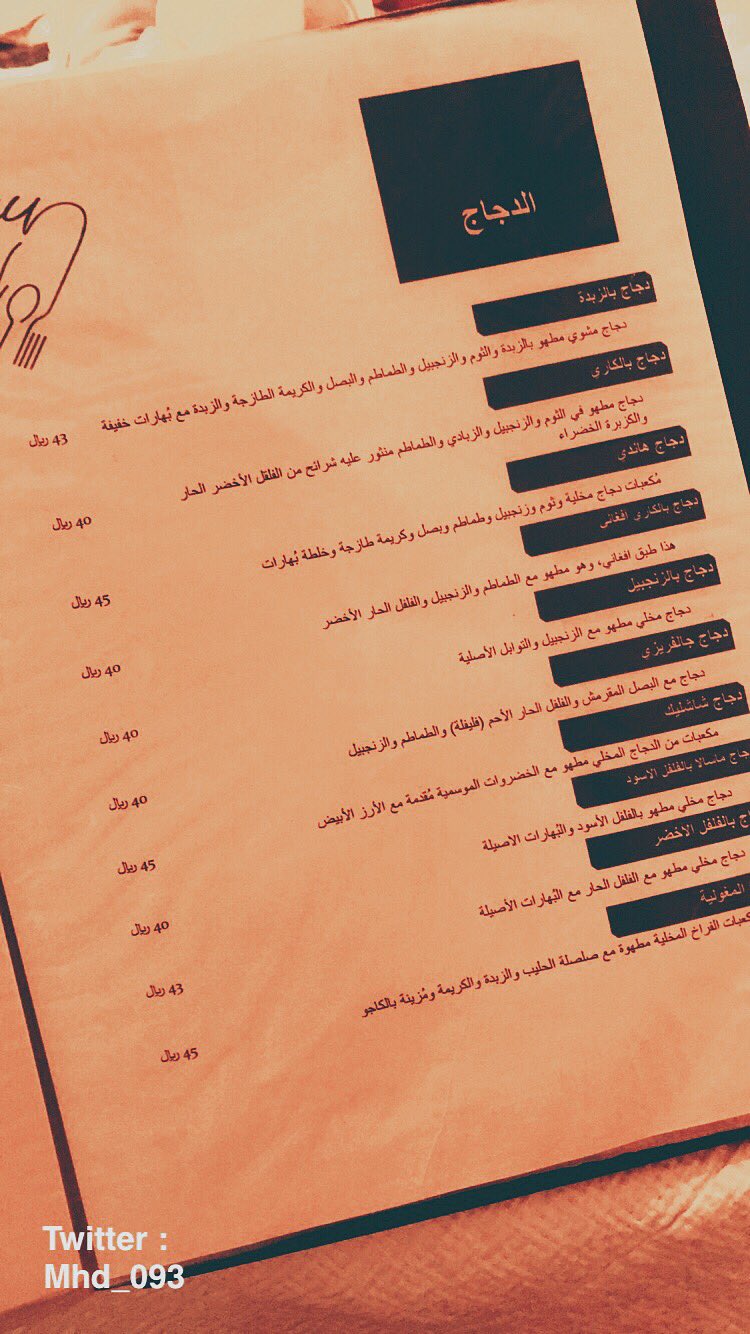 الدجاج
دجاج بالزبدة
دجاج مشوي مطهو بالزبدة والثوم والزنجبيل والطماطم والبصل والكريمة الطازجة والزبدة مع بُهارات خفيفة
43 ريال
دجاج بالكاري
دجاج مطهو في الثوم والزنجبيل والزبادي والطماطم منثور عليه شرائح من الفلفل الأخضر الحار
والكزبرة الخضراء
40 ريال
دجاج هاندي
مُكعبات دجاج مخلية وثوم وزنجبيل وطماطم وبصل وكريمة طازجة وخلطة بُهارات
45 ريال
دجاج بالكاري افغاني
هذا طبق افغاني، وهو مطهو مع الطماطم والزنجبيل والفلفل الحار الأخضر
40 ريال
دجاج بالزنجبيل
دجاج مخلي مطهو مع الزنجبيل والتوابل الأصلية
40 ريال
دجاج جالفريزي
دجاج مع البصل المقرمش والفلفل الحار الأحم (فليفلة) والطماطم والزنجبيل
40 ريال
دجاج شاشليك
مكعبات من الدجاج المخلي مطهو مع الخضروات الموسمية مُقدمة مع الأرز الأبيض
45 ريال
ماسالا بالفلفل الاسود
دجاج مخلي مطهو بالفلفل الأسود والبُهارات الاصيلة
40 ريال
بالفلفل الاخضر
دجاج مخلي مطهو مع الفلفل الحار مع البُهارات الأصيلة
43 ريال
المغولية
الفراخ المخلية مطهوة مع صلصلة الحليب والزبدة والكريمة ومُزينة بالكاجو
45 ريال
Twitter :
Mhd_093